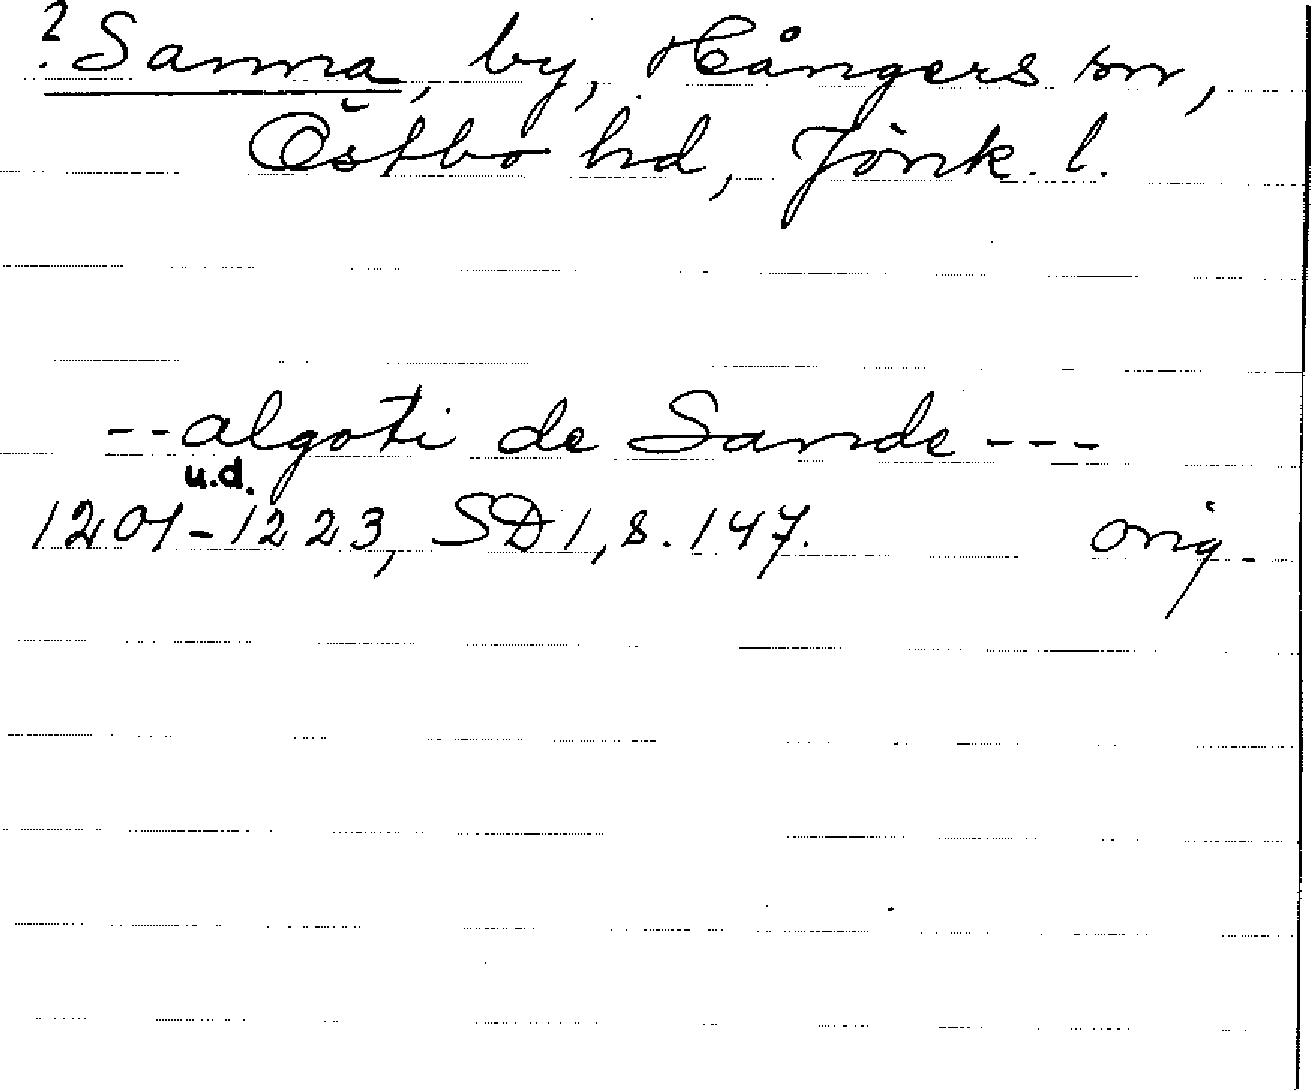 ? Sanna, by, Kångers sn,
Östbo hd, Jönk. l.
--algoti de Sande---
u.d.
1201-1223, SD1, s. 147. orig.